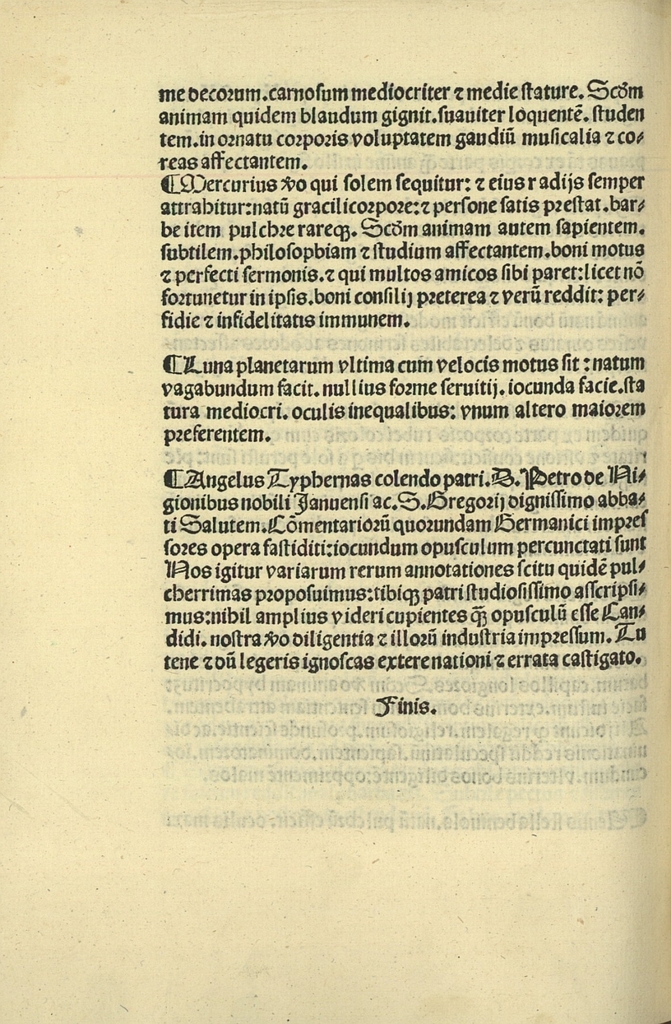 me decorum.carnosum mediocriter ⁊ medie stature. Scd̄m
animam quidem blandum gignit.suauiter loquentē. studen
tem.in ornatu corporis voluptatem gaudiū musicalia ⁊ co⸗
reas affectantem.
¶Mercurius v̄o qui solem sequitur: ⁊ eius radijs semper
attrahitur:natū gracili corpore:⁊ persone satis prestat.bar⸗
be item pulchre rareqꝫ. Scd̄m animam autem sapientem.
subtilem.philosophiam ⁊ studium affectantem.boni motus
⁊ perfecti sermonis.⁊ qui multos amicos sibi paret:licet nō
fortunetur in ipsis.boni consilij preterea ⁊ verū reddit: per⸗
fidie ⁊ infidelitatis immunem.
¶Luna planetarum vltima cum velocis motus sit : natum
vagabundum facit. nullius forme seruitij. iocunda facie.sta
tura mediocri. oculis inequalibus: vnum altero maiorem
preferentem.
¶Angelus Typhernas colendo patri. D. Petro de Ni⸗
gionibus nobili Januensi ac. S. Gregorij dignissimo abba⸗
ti Salutem. Cōmentariorū quorundam Germanici impres
sores opera fastiditi:iocundum opusculum percunctati sunt
Nos igitur variarum rerum annotationes scitu quidē pul⸗
cherrimas proposuimus:tibiqꝫ patri studiosissimo asscripsi⸗
mus:nihil amplius videri cupientes qꝫ̄ opusculū esse Can⸗
didi. nostra v̄o diligentia ⁊ illorū industria impressum. Tu
tene ⁊ dū legeris ignoscas extere nationi ⁊ errata castigato.
Finis.